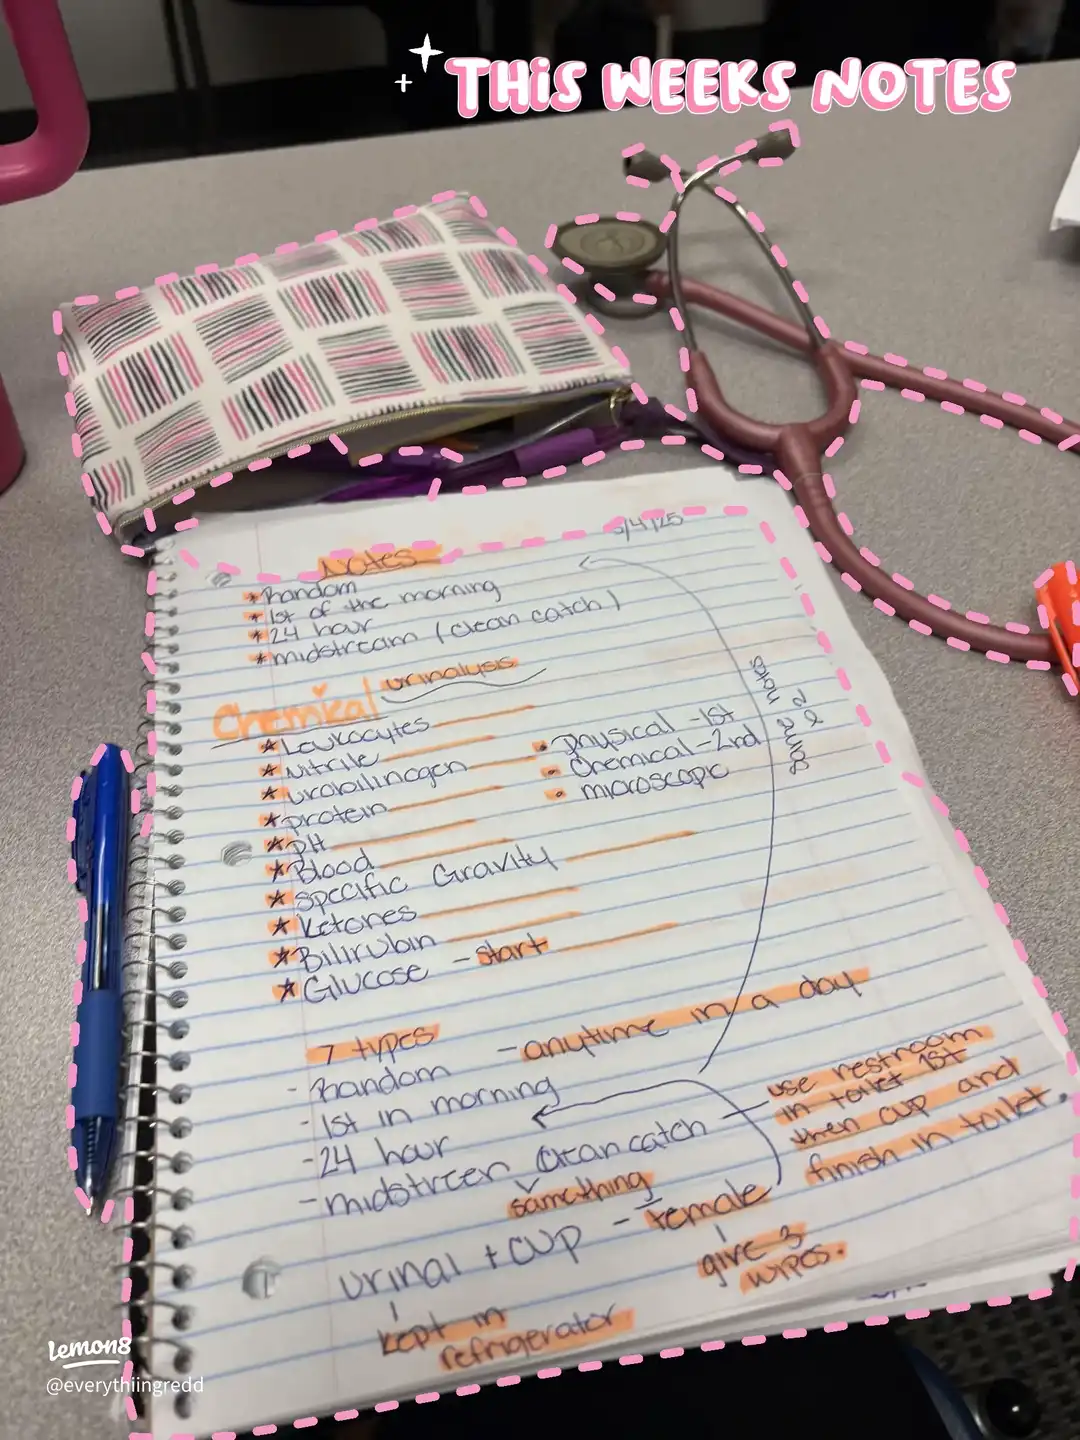 THIS WEEKS NOTES
5/4/25
Notes
* Random
* 1st of the morning
* 24 hour
* midstream (clean catch)
Chemical urinalysis
* Leukocytes
* nitrile
* urobilinogen
* protein
* pH
* Blood
* specific Gravity
* Ketones
* Bilirubin
* Glucose - start
• physical - 1st
• Chemical - 2nd
• microscopic
Same
notes
7 types
- Random - anytime in a day
- 1st in morning
- 24 hour
- midstreem Clean catch
something
use restroom
in toilet 1st
then cup and
finish in toilet.
urinal + cup - female
give 3
wipes.
kept in
refrigerator
lemon8
@everythiingredd